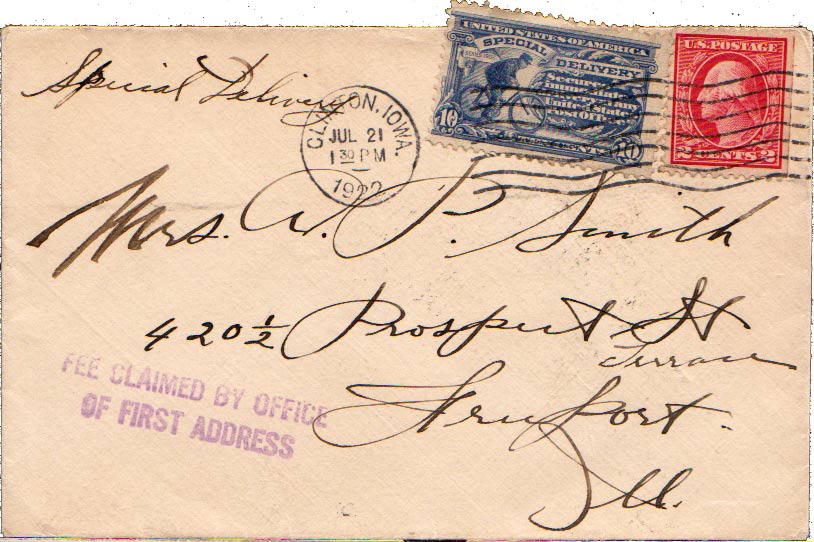 Special Delivery
CLINTON, IOWA.
JUL 21
1 30 PM
1922
UNITED STATES OF AMERICA
SPECIAL DELIVERY
Secures
immediate
United States
post office
10 10
TEN CENTS
U.S. POSTAGE
2 CENTS 2
Mrs. W. P. Smith
420 1/2 Prospect St
Terrace
Freeport.
Ill.
FEE CLAIMED BY OFFICE
OF FIRST ADDRESS